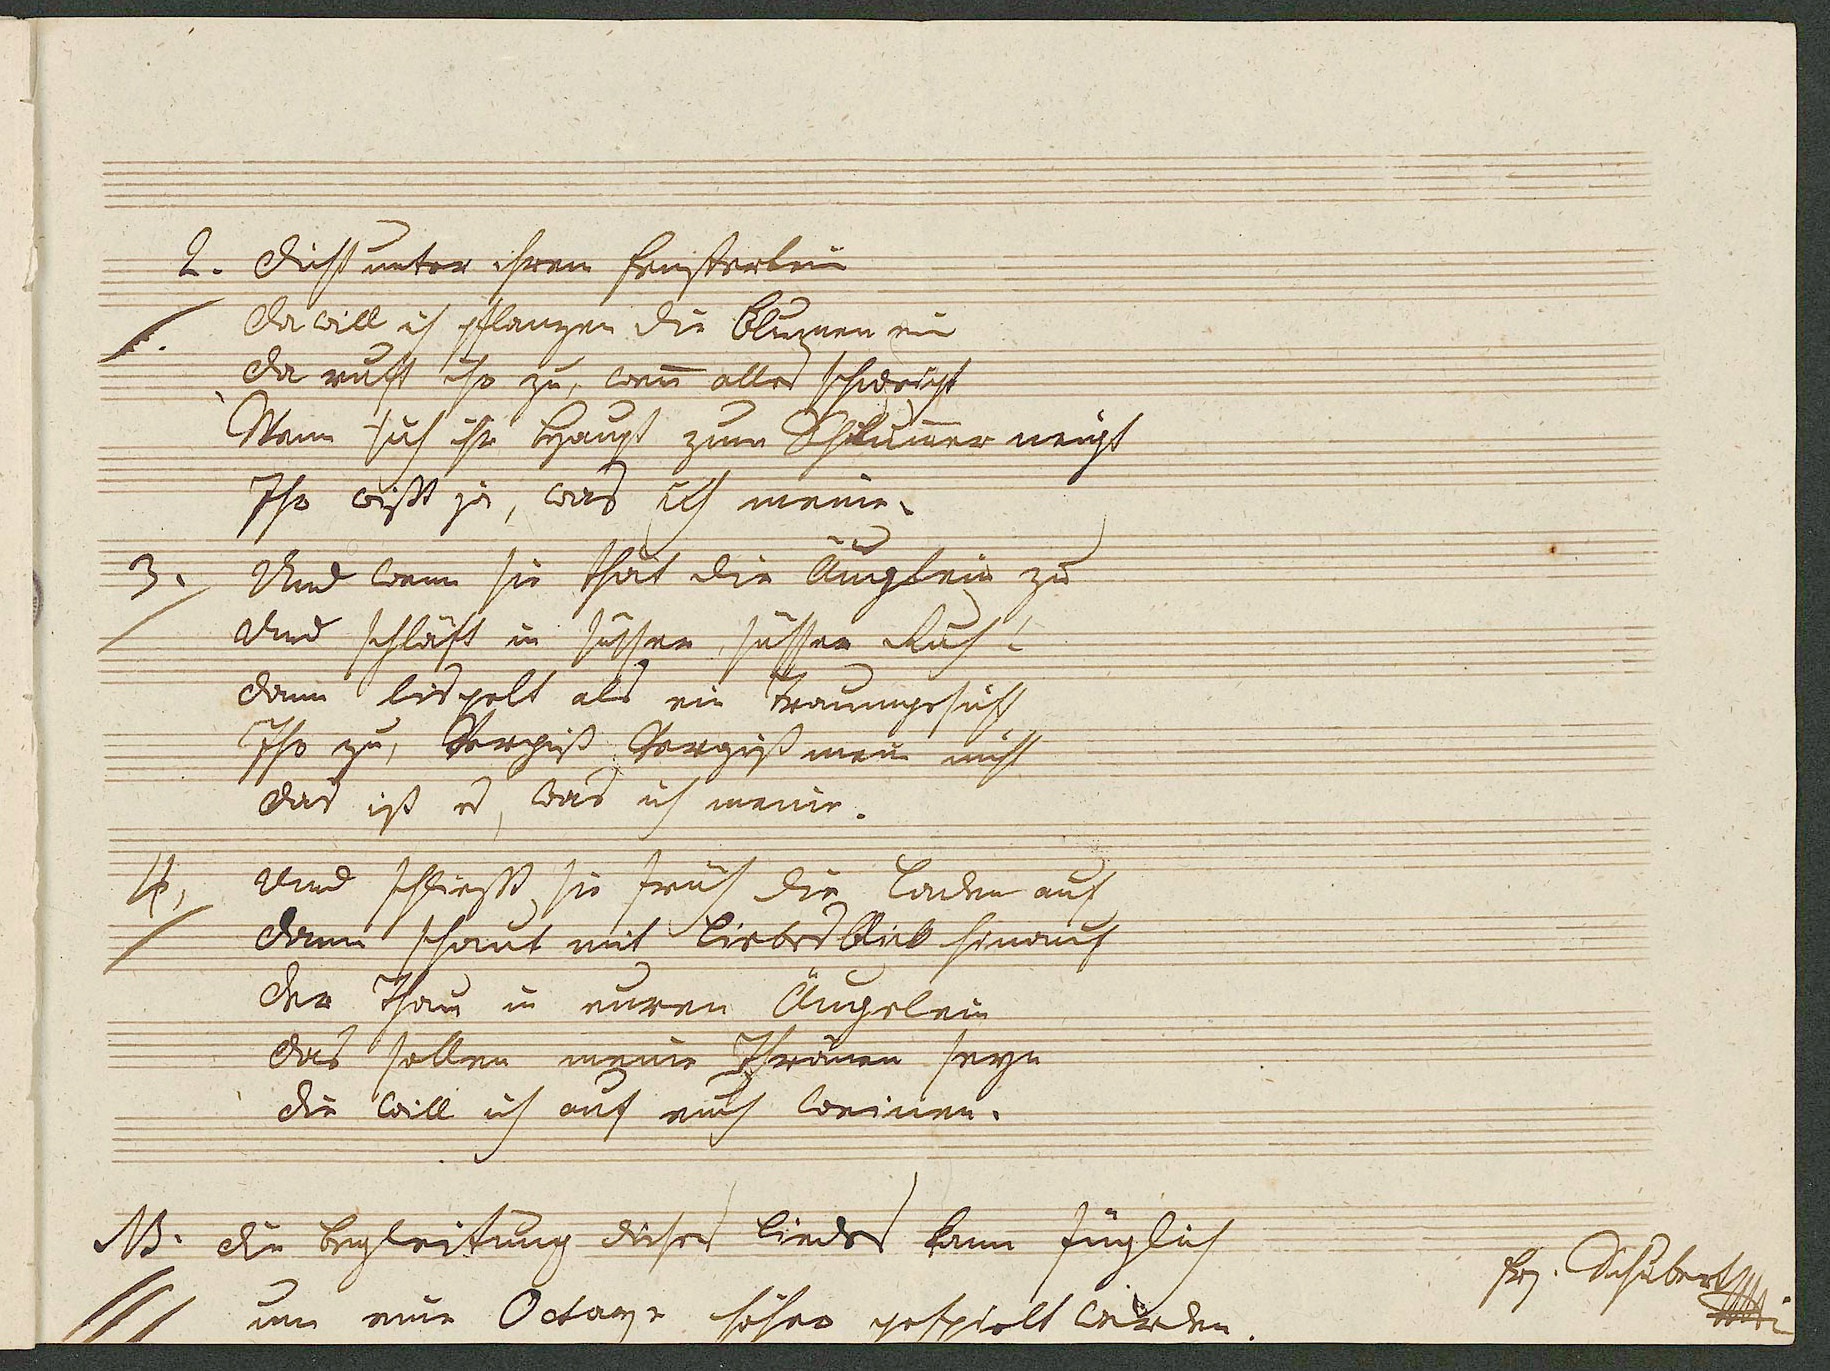 2. Dicht unter ihrem Fensterlein
Da will ich pflanzen die Blumen ein
Da ruft ihr zu, wenn alles schweigt
Wenn sich ihr Haupt zum Schlummer neigt
Ihr wißt ja, was ich meine.
3. Und wenn sie that die Äuglein zu
Und schläft in süsser, süsser Ruh'
Dann lispelt als ein Traumgesicht
Ihr zu, Vergiß Vergiß mein nicht
Das ist es, was ich meine.
4, Und schließt sie früh die Laden auf
Dann schaut mit Liebesblick hinauf
Der Thau in euren Äugelein
Das sollen meine Thränen seyn
Die will ich auf euch weinen.
NB. Die Begleitung dieses Liedes kann füglich
um eine Octave höher gespielt werden.
Frz. Schubert